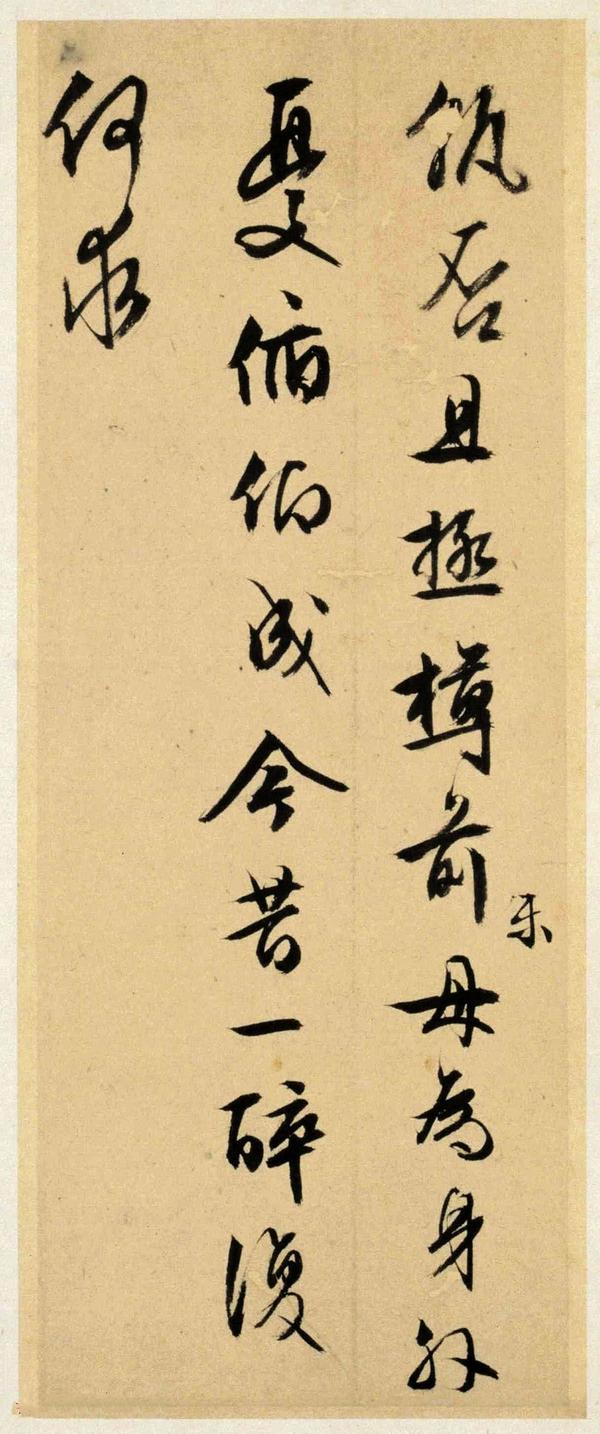 否且極樽前樂毋為身外
憂俯仰成今昔一醉復
何求